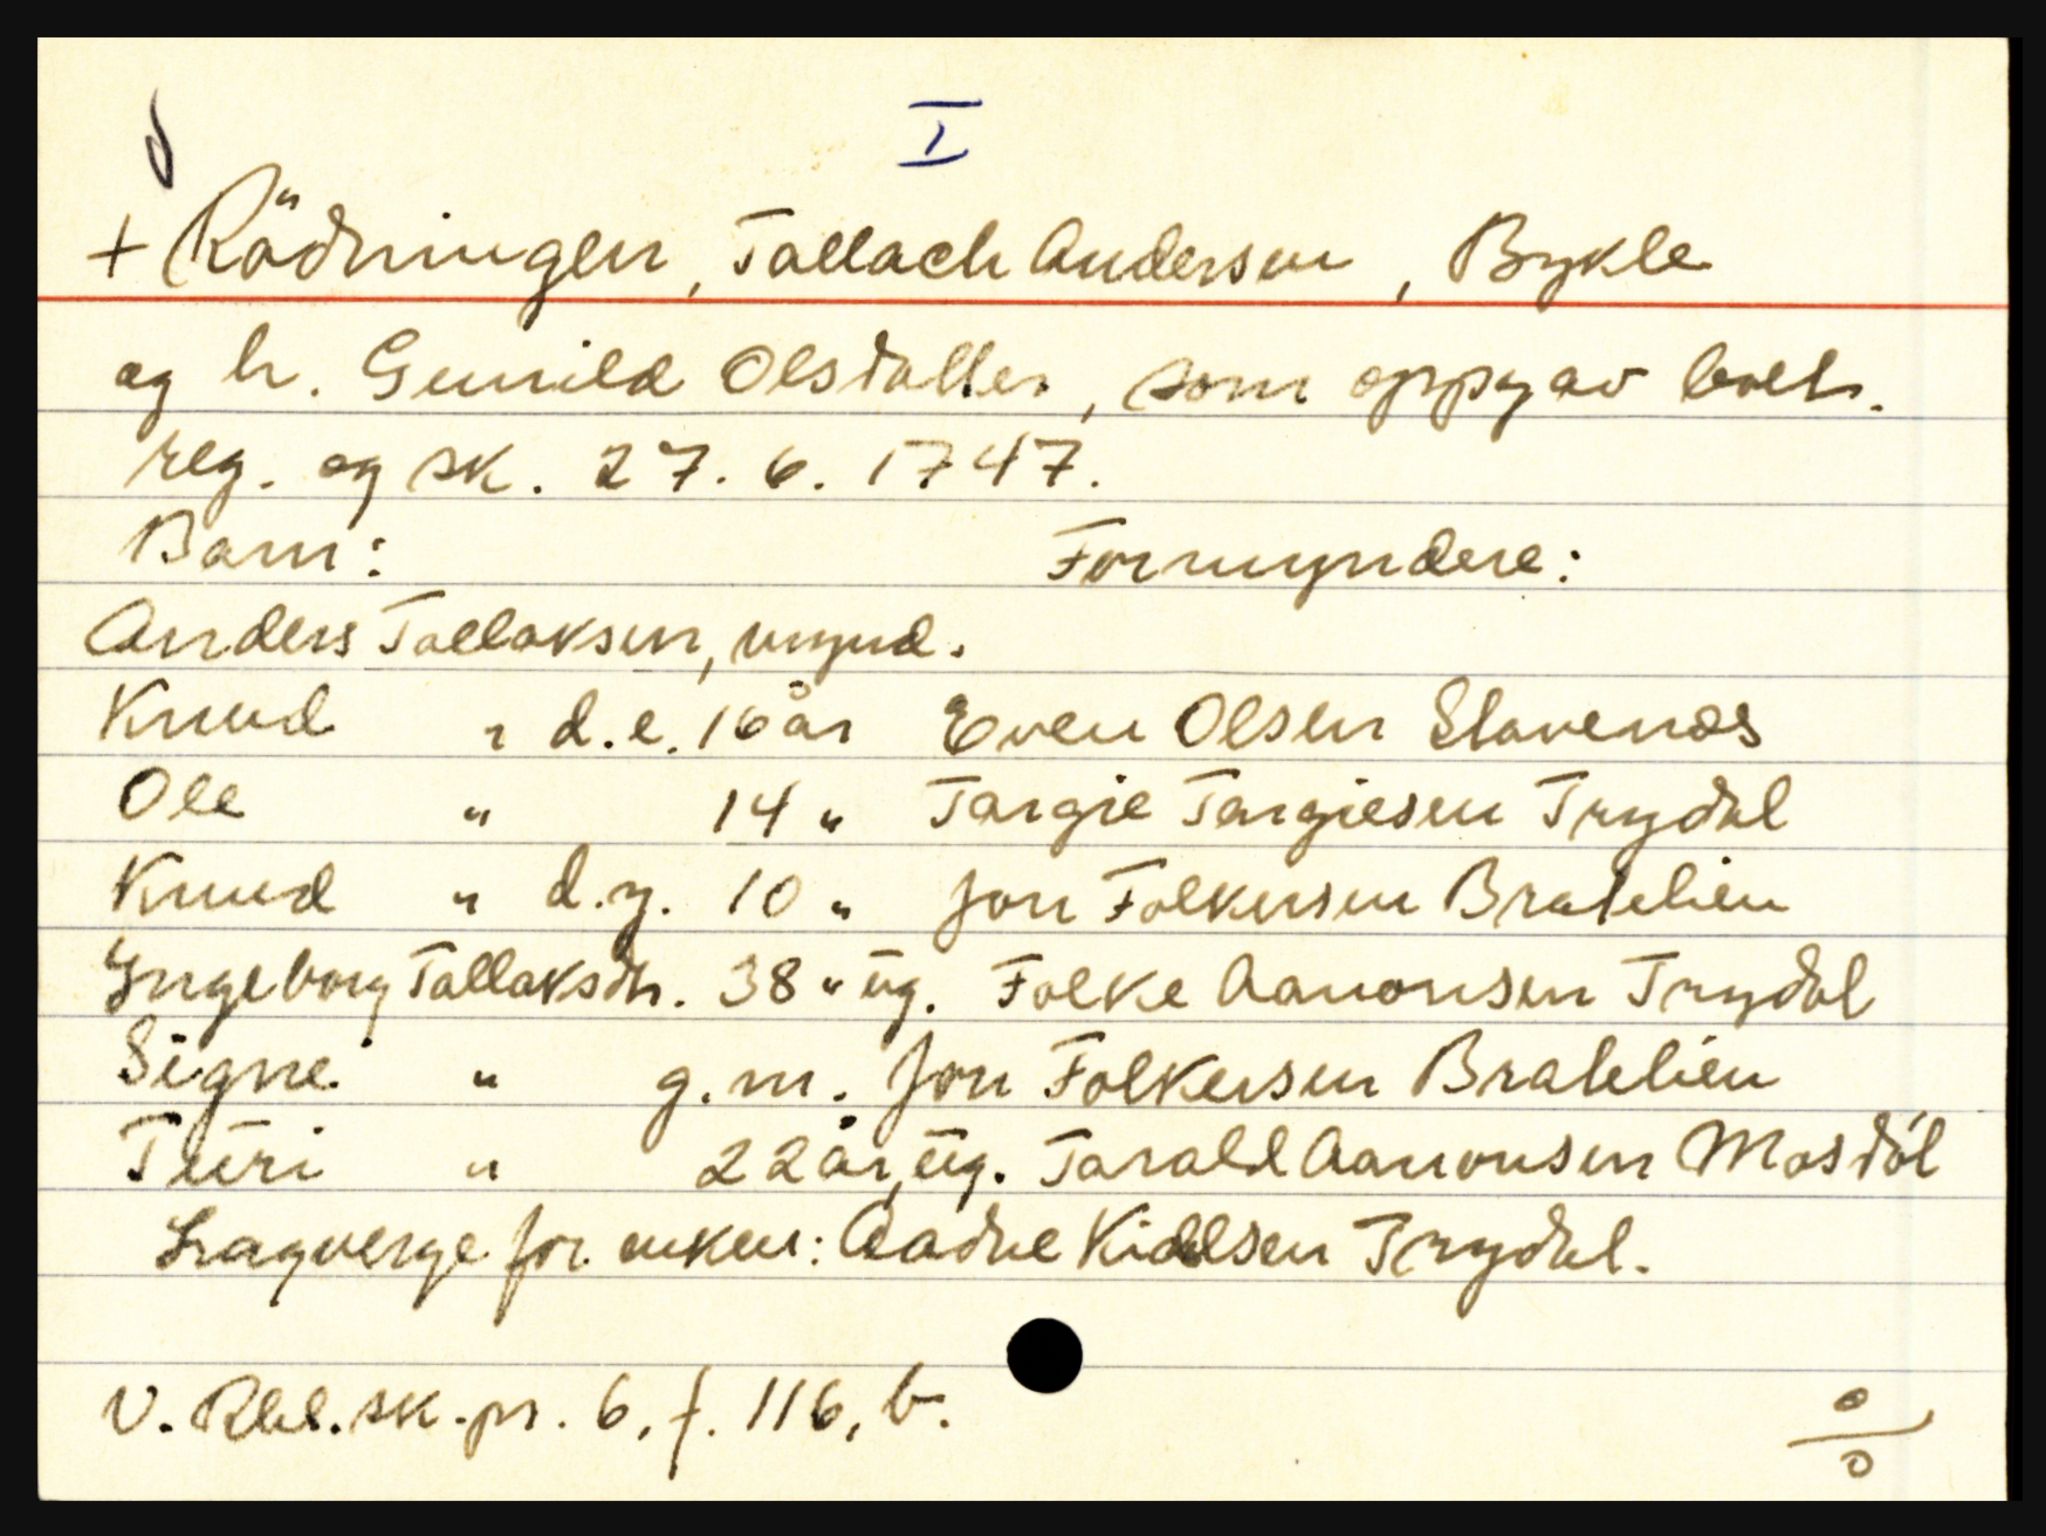 I
+ Rödningen, Tallach Andersen, Bykle
og h. Gunild Olsdatter, som oppgav boets
reg. og sk. 27. 6. 1747.
Barn: Formyndere:
Anders Tallaksen, mynd.
Knud " d.e. 16 år Even Olsen Stavenæs
Ole " 14 " Targie Targiesen Trydal
Knud " d.y. 10 " Jon Folkersen Bratelien
Ingeborg Tallaksdtr. 38 " ug. Folke Aanonsen Trydal
Signe " g.m. Jon Folkersen Bratelien
Turi " 22 år, ug. Tarald Aanonsen Mosdöl
Lagverge for enken: Aadne Kidelsen Trydal.
V. Rbl. sk. pr. 6, f. 116, b.